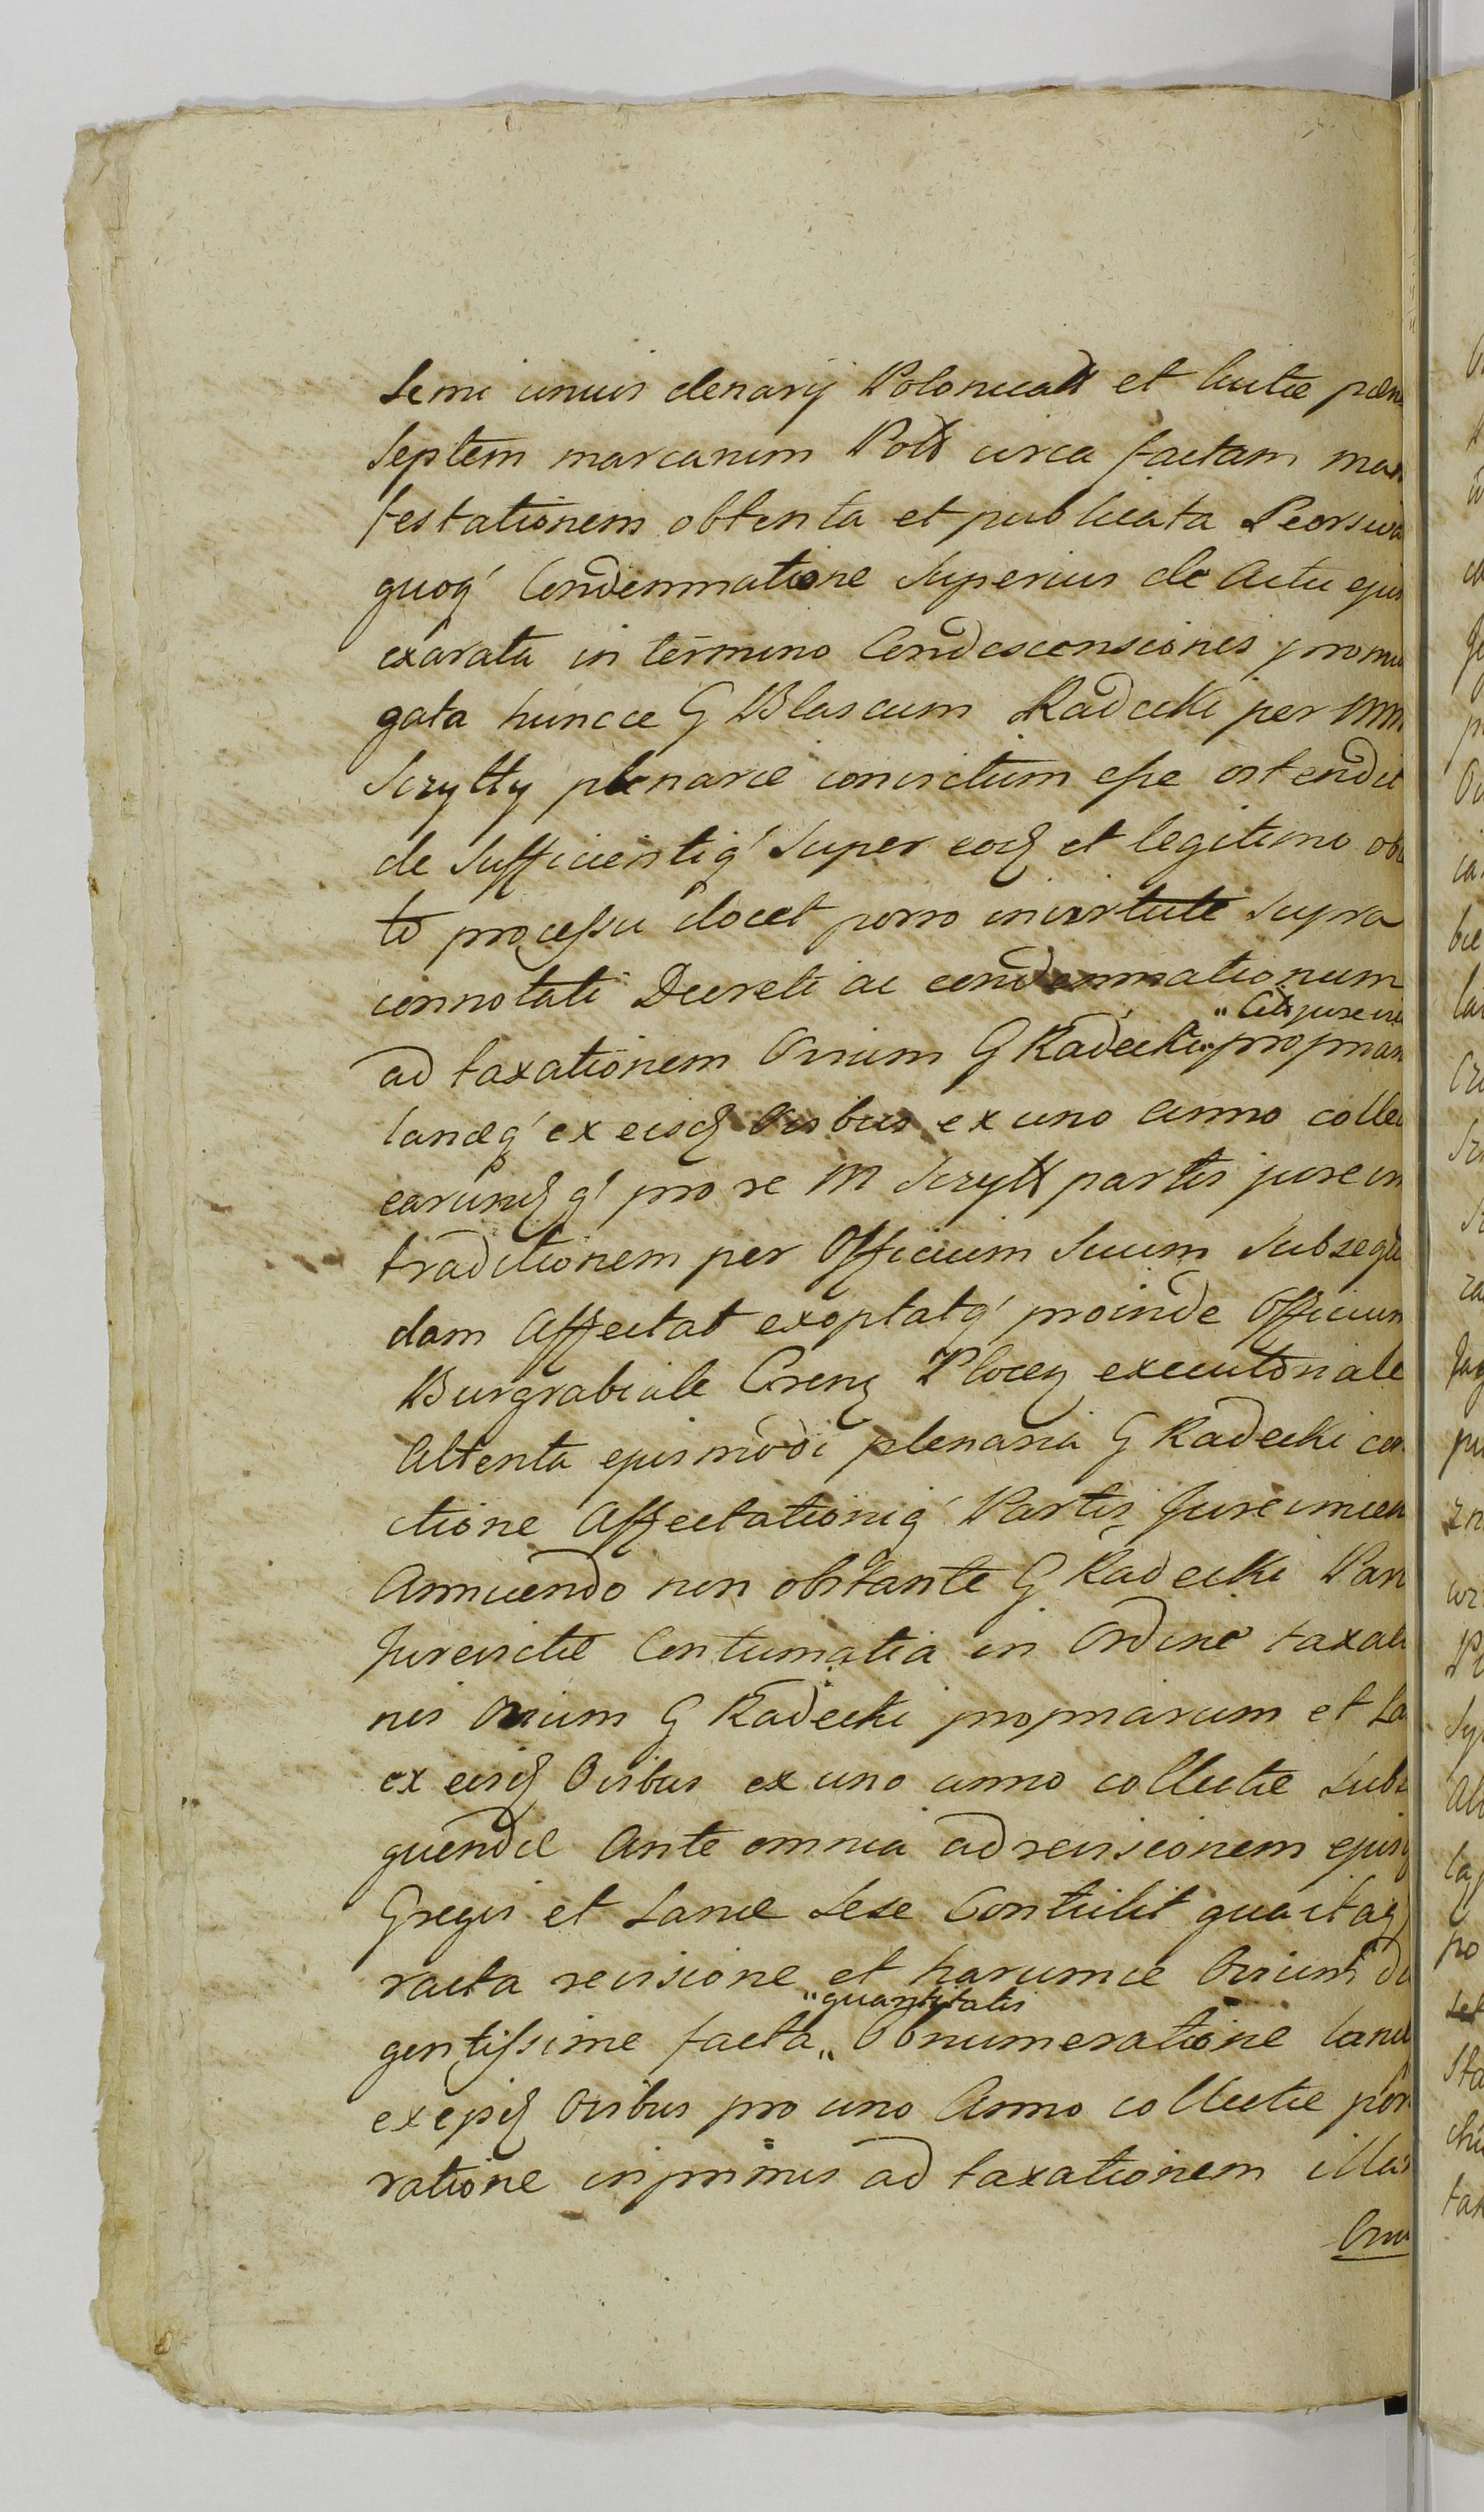 Semi unius denarij Polonical et luitæ pæn
Septem marcarum Pol circa factam man
festationem obtenta et publicata Seorsiva
quoq' Condemnatione Superius de Actu ejus
exarata in termino Condescensiones promu
gata huncce G Blasium Radecki per MM
Szytty plenarie convictum esse ostendit
de Sufficientiq' Super eodq et legitimo obt
to processu docet porro invirtute Supra
connotati Decreti ac condemnationum
ad taxationem Ovium G Radecki „propriar
„Citi jure vic
lanæq' ex eisdq Ovibus ex uno anno collec
earundq q' pro re M Szytt partis jure vi
traditionem per Officium Suum Subsequ
dam Affectat exoptatq' proinde Officium
Burgrabiale Crens Plocen executoriale
Attenta ejusmodi plenaria G Radecki con
ctione Affectationiq' Partis Jurevincen
Annuendo non obstante G Radecki Part
Jurevictæ Contumatia in Ordine taxati
nis Ovium G Radecki propriarum et La
ex eisdq Ovibus ex uno anno collectæ Subs
quendæ Ante omnia ad revisionem ejusq
Gregis et Lanæ Sese Contulit qua itaq
racta revisione et harumce Ovium di
„quantitatis
gentissime facta „ Obnumeratione lanæ
ex ejsdq Ovibus pro uno Anno collectæ pon
ratione inprimis ad taxationem illar
Ovi